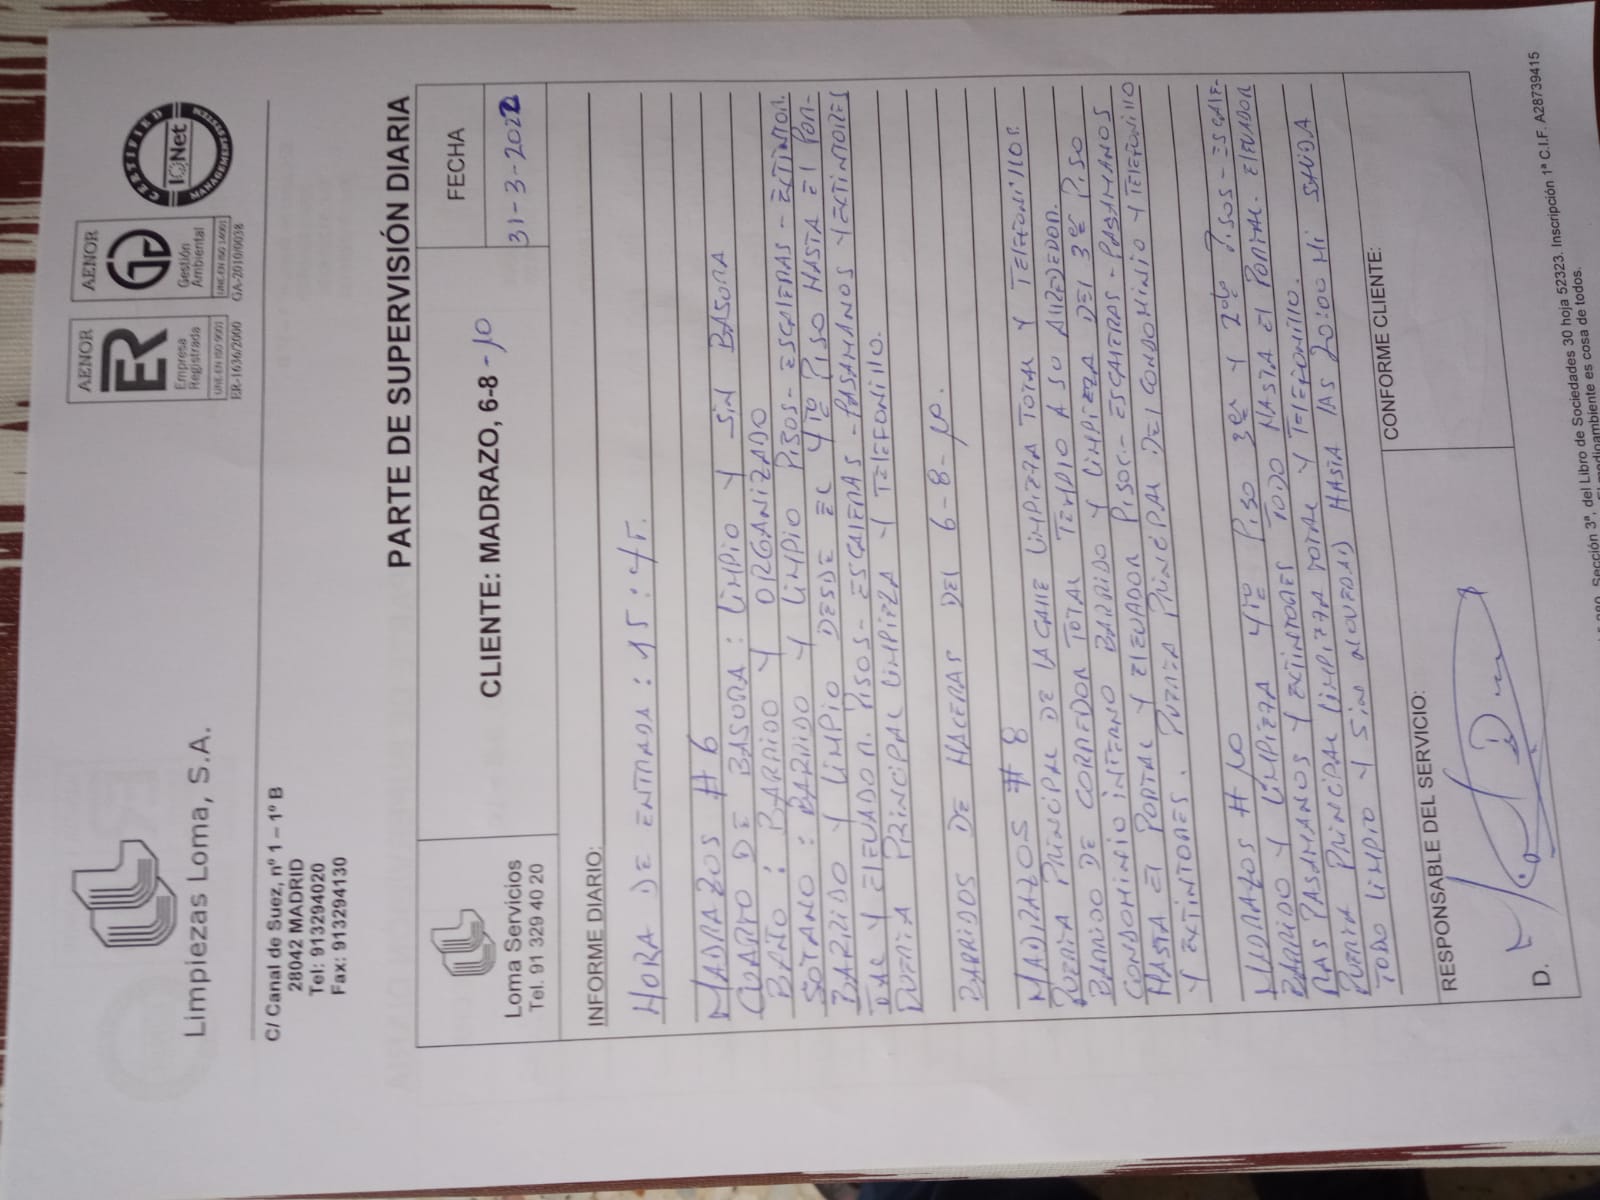 Limpiezas Loma, S.A.
C/ Canal de Suez, nº 1 – 1º B
28042 MADRID
Tel: 913294020
Fax: 913294130
AENOR
ER
Empresa
Registrada
UNE-EN ISO 9001
ER-1636/2000
AENOR
Gestión
Ambiental
UNE-EN ISO 14001
GA-2010/0038
CERTIFIED
IQNet
MANAGEMENT
PARTE DE SUPERVISIÓN DIARIA
Loma Servicios
Tel. 91 329 40 20
CLIENTE: MADRAZO, 6-8 - 10
FECHA
31-3-2022
INFORME DIARIO:
HORA DE ENTRADA: 15:45.
MADRAZOS # 6
CUARTO DE BASURA: LIMPIO Y SIN BASURA
BAÑO: BARRIDO Y ORGANIZADO
SOTANO: BARRIDO Y LIMPIO PISOS- ESCALERAS - EXTINTOR.
BARRIDO Y LIMPIO DESDE EL 4TO PISO HASTA EL POR-
TAL Y ELEVADOR. PISOS- ESCALERAS - PASAMANOS Y EXTINTORES
PUERTA PRINCIPAL LIMPIEZA Y TELEFONILLO.
BARRIDOS DE HACERAS DEL 6-8-10.
MADRAZOS # 8
PUERTA PRINCIPAL DE LA CALLE LIMPIEZA TOTAL Y TELEFONILLOS.
BARRIDO DE CORREDOR TOTAL TENDIO A SO ALREDEDOR.
CONDOMINIO INTERNO BARRIDO Y LIMPIEZA DEL 3ER PISO
HASTA EL PORTAL Y ELEVADOR PISOS- ESCALERAS - PASAMANOS
Y EXTINTORES. PUERTA PRINCIPAL DEL CONDOMINIO Y TELEFONILLO
MADRAZOS # 10
BARRIDO Y LIMPIEZA 4TO PISO 3ER Y 2DO PISOS - ESCALE-
RAS PASAMANOS Y EXTINTORES TODO HASTA EL PORTAL. ELEVADOR
PUERTA PRINCIPAL LIMPIEZA TOTAL Y TELEFONILLO.
TODO LIMPIO Y SIN NOVEDAD HASTA LAS 20:00 MI SALIDA
RESPONSABLE DEL SERVICIO:
D.
CONFORME CLIENTE:
Sección 3ª, del Libro de Sociedades 30 hoja 52323. Inscripción 1ª C.I.F. A28739415
El medioambiente es cosa de todos.